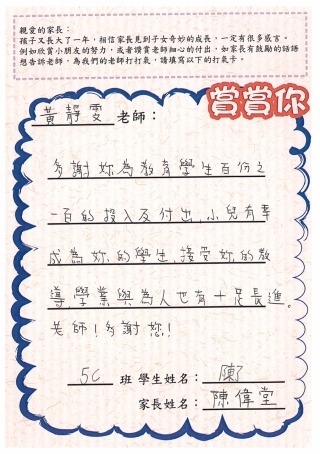 親愛的家長：
孩子又長大了一年，相信家長見到子女奇妙的成長，一定有很多感言。
例如欣賞小朋友的努力，或者讚賞老師細心的付出，如家長有鼓勵的話語
想告訴老師，為我們的老師打打氣，請填寫以下的打氣卡。
賞賞你
黃靜雯老師：
多謝妳為教育學生百份之
一百的投入及付出，小兒有幸
成為妳的學生，接受妳的教
導，學業與為人也有十足長進。
老師！多謝您！
5C 班 學生姓名：陳
家長姓名：陳偉堂